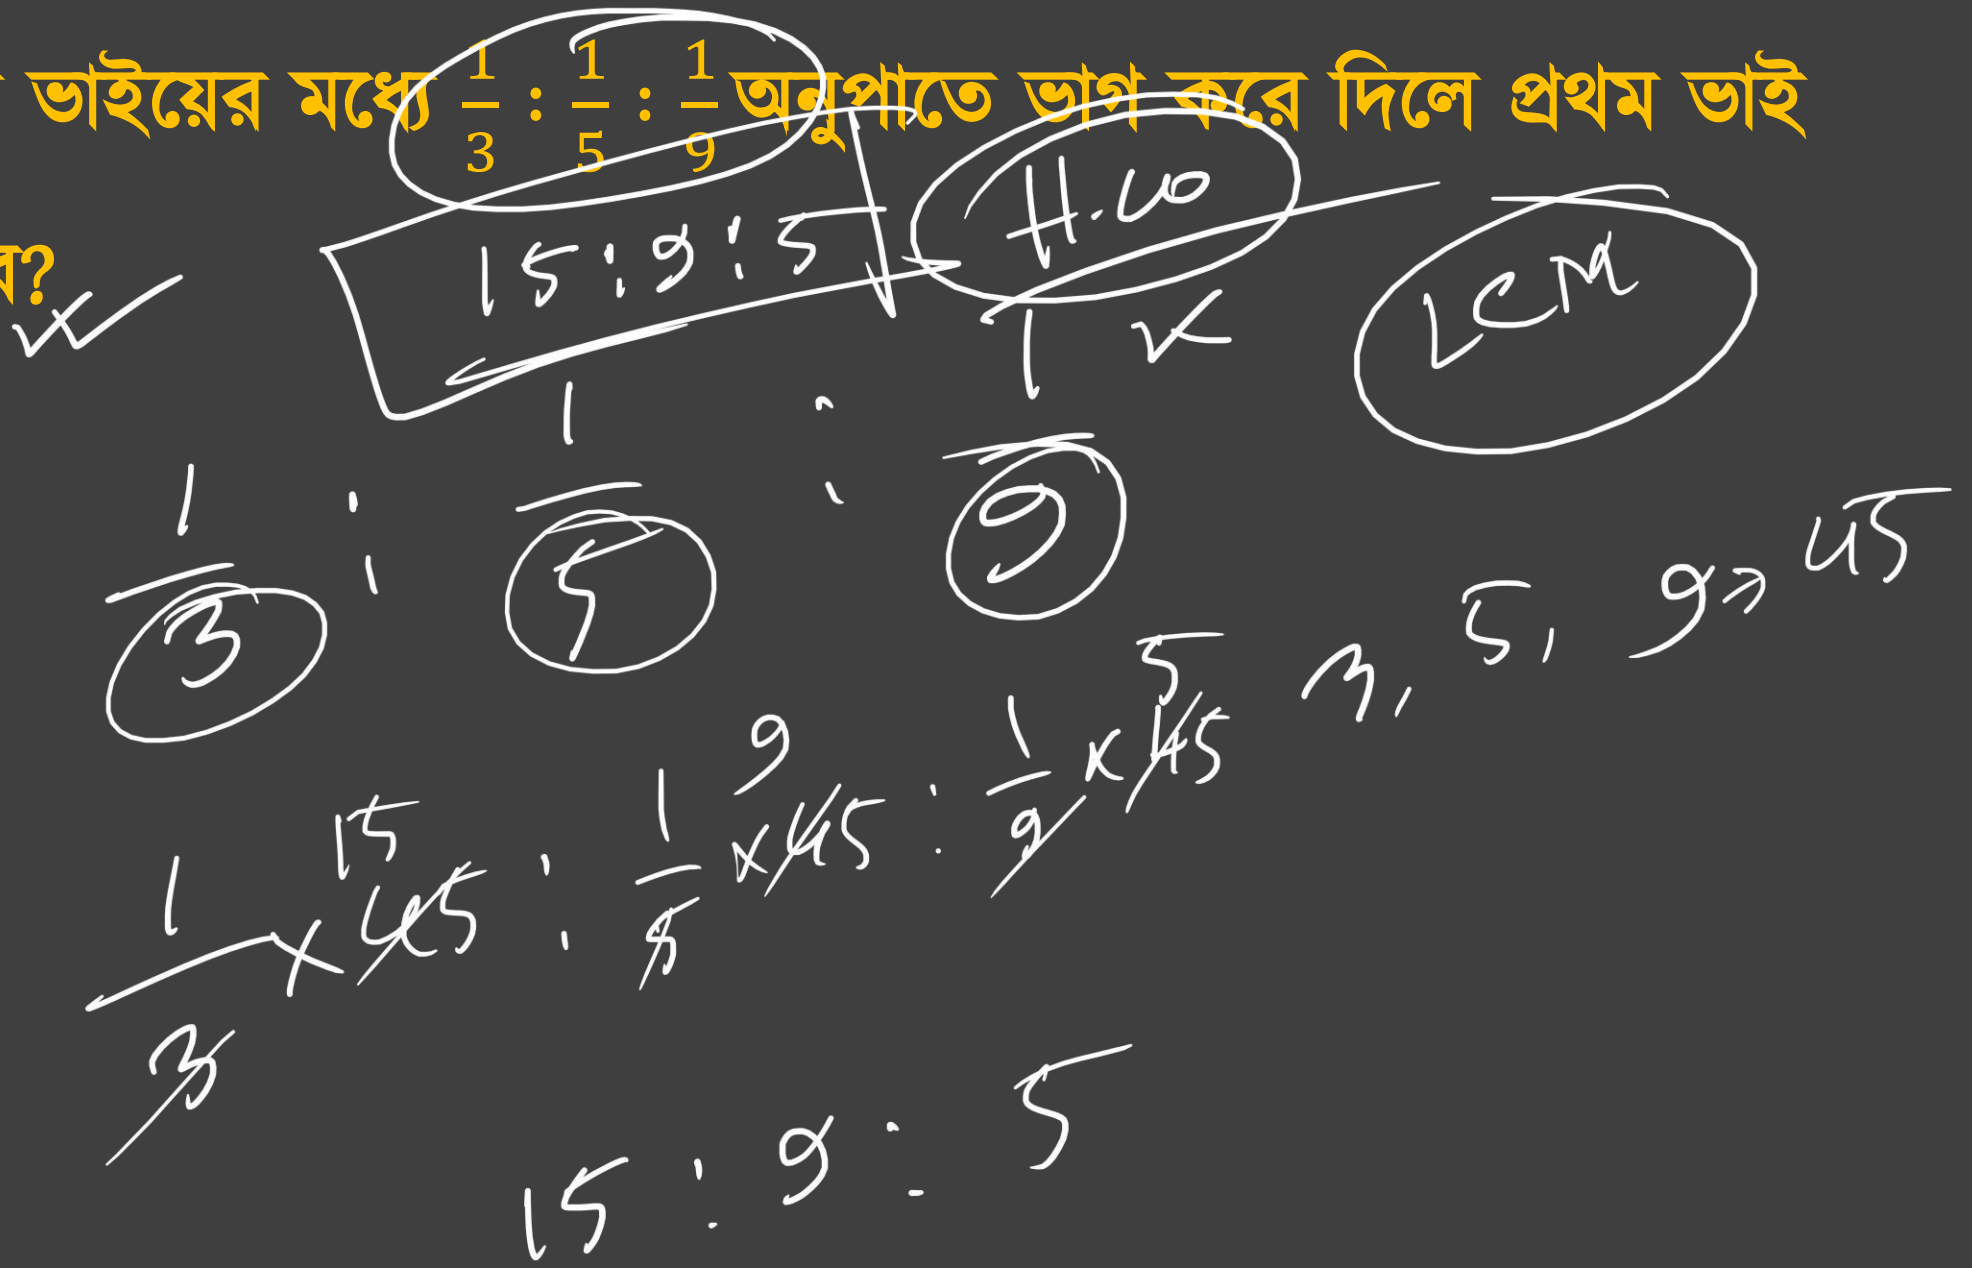 ভাইয়ের মধ্যে 1/3 : 1/5 : 1/9 অনুপাতে ভাগ করে দিলে প্রথম ভাই
?
15:9:5 H.W
LCM
1/3 : 1/5 : 1/9
3, 5, 9 45
1/3 × 45 15 : 1/5 × 45 9 : 1/9 × 45 5
15 : 9 : 5